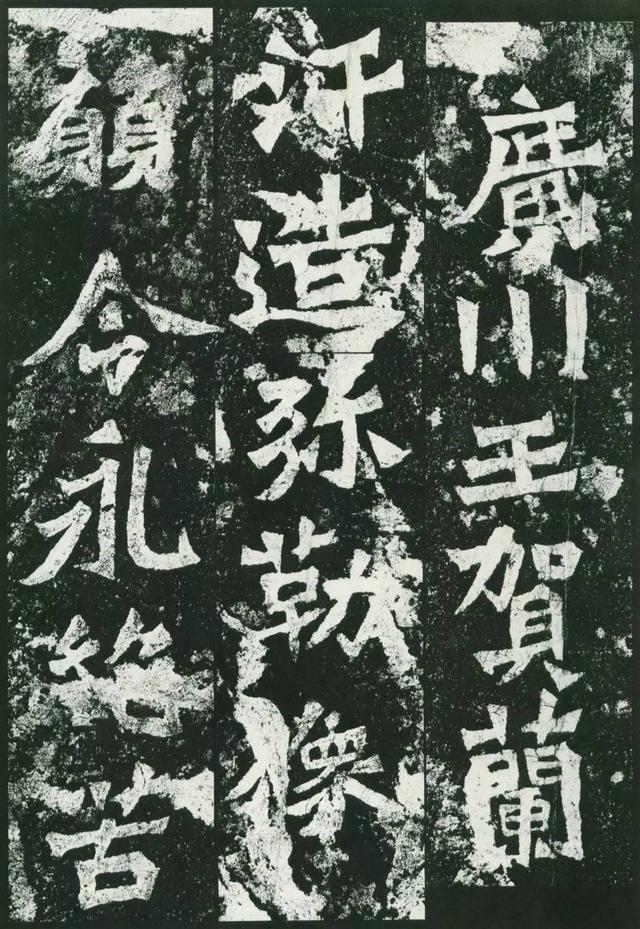 廣川王賀蘭
汗造弥勒像
願令永絕苦